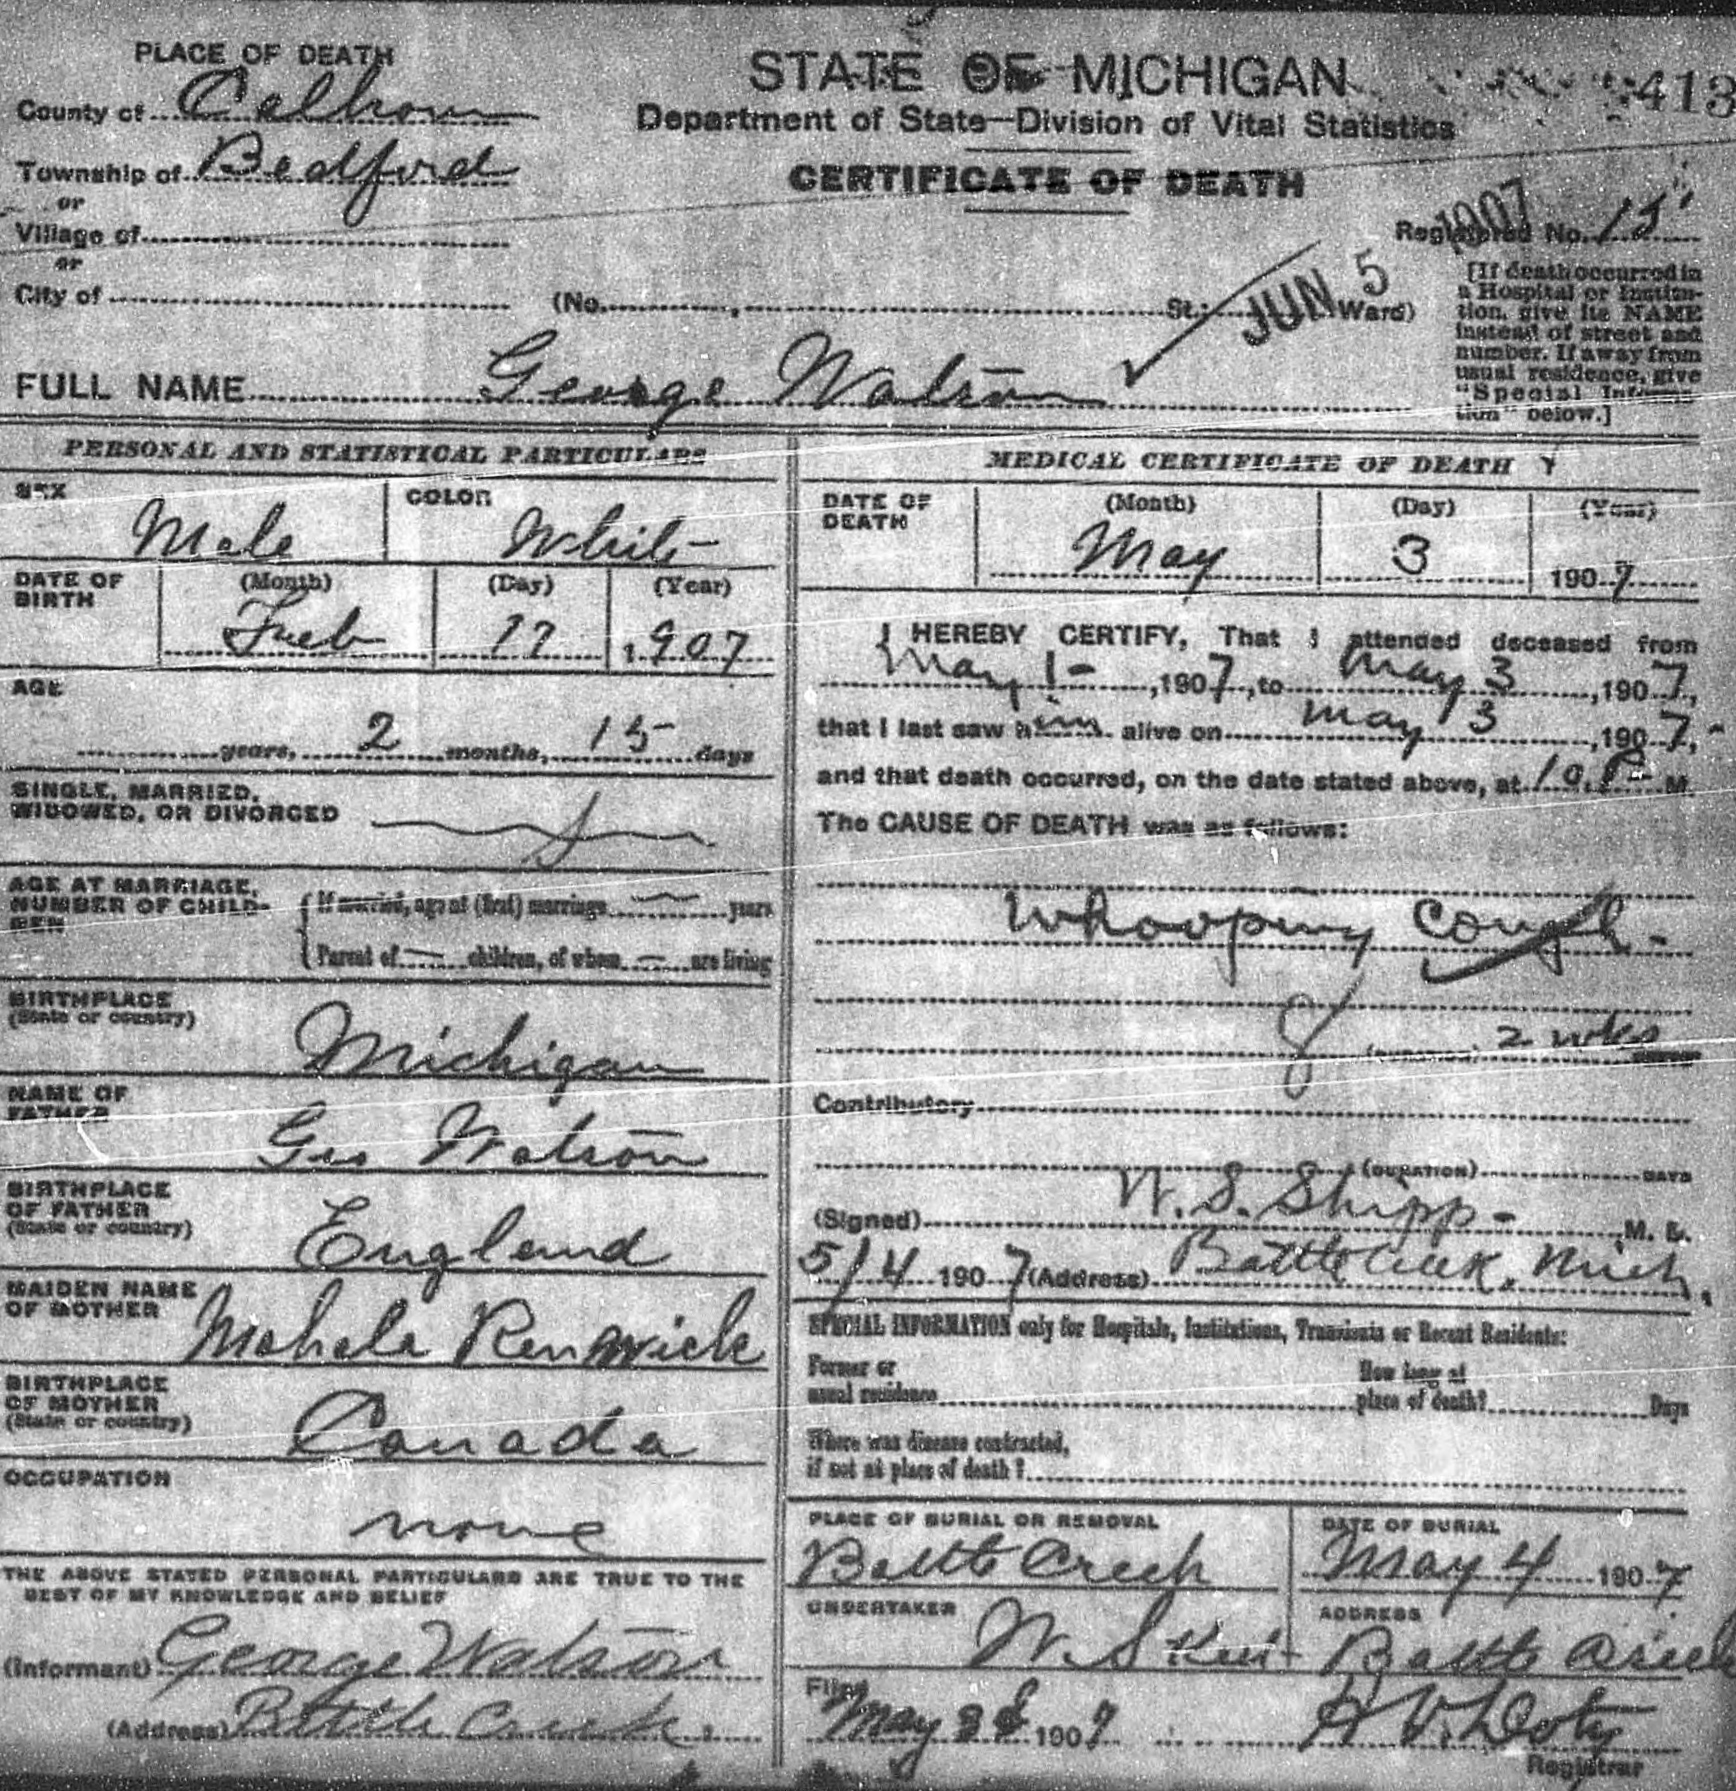 PLACE OF DEATH
County of Calhoun
Township of Bedford
or
Village of
or
City of
STATE OF MICHIGAN
413
Department of State—Division of Vital Statistics
CERTIFICATE OF DEATH
Registered No. 15
JUN 5 1907
(No. , St.; Ward)
[If death occurred in
a Hospital or Institu-
tion, give its NAME
instead of street and
number. If away from
usual residence, give
"Special Informa-
tion" below.]
FULL NAME George Watson
PERSONAL AND STATISTICAL PARTICULARS
SEX Male
COLOR White
DATE OF
BIRTH
(Month) (Day) (Year)
Feb 17 1907
AGE
years, 2 months, 15 days
SINGLE, MARRIED,
WIDOWED, OR DIVORCED S
AGE AT MARRIAGE,
NUMBER OF CHILD-
REN
If married, age at (first) marriage years
Parent of — children, of whom — are living
BIRTHPLACE
(State or country)
Michigan
NAME OF
FATHER
Geo Watson
BIRTHPLACE
OF FATHER
(State or country)
England
MAIDEN NAME
OF MOTHER
Mahala Renwick
BIRTHPLACE
OF MOTHER
(State or country)
Canada
OCCUPATION
none
THE ABOVE STATED PERSONAL PARTICULARS ARE TRUE TO THE
BEST OF MY KNOWLEDGE AND BELIEF
(Informant) George Watson
(Address) Battle Creek.
MEDICAL CERTIFICATE OF DEATH
DATE OF
DEATH
(Month) (Day) (Year)
May 3 1907
I HEREBY CERTIFY, That I attended deceased from
May 1 - , 1907, to May 3 , 1907,
that I last saw him alive on May 3 , 1907,
and that death occurred, on the date stated above, at 10 P M.
The CAUSE OF DEATH was as follows:
Whooping Cough -
2 wks
Contributory
(DURATION) DAYS
(Signed) W. S. Shipp - , M. D.
5/4 1907 (Address) Battle Creek, Mich.
SPECIAL INFORMATION only for Hospitals, Institutions, Transients or Recent Residents:
Former or
usual residence
How long at
place of death? Days
Where was disease contracted,
if not at place of death?
PLACE OF BURIAL OR REMOVAL
Battle Creek
DATE OF BURIAL
May 4 1907
UNDERTAKER
W. S
ADDRESS
Battle Creek
Filed
May 1907
Doty
Registrar